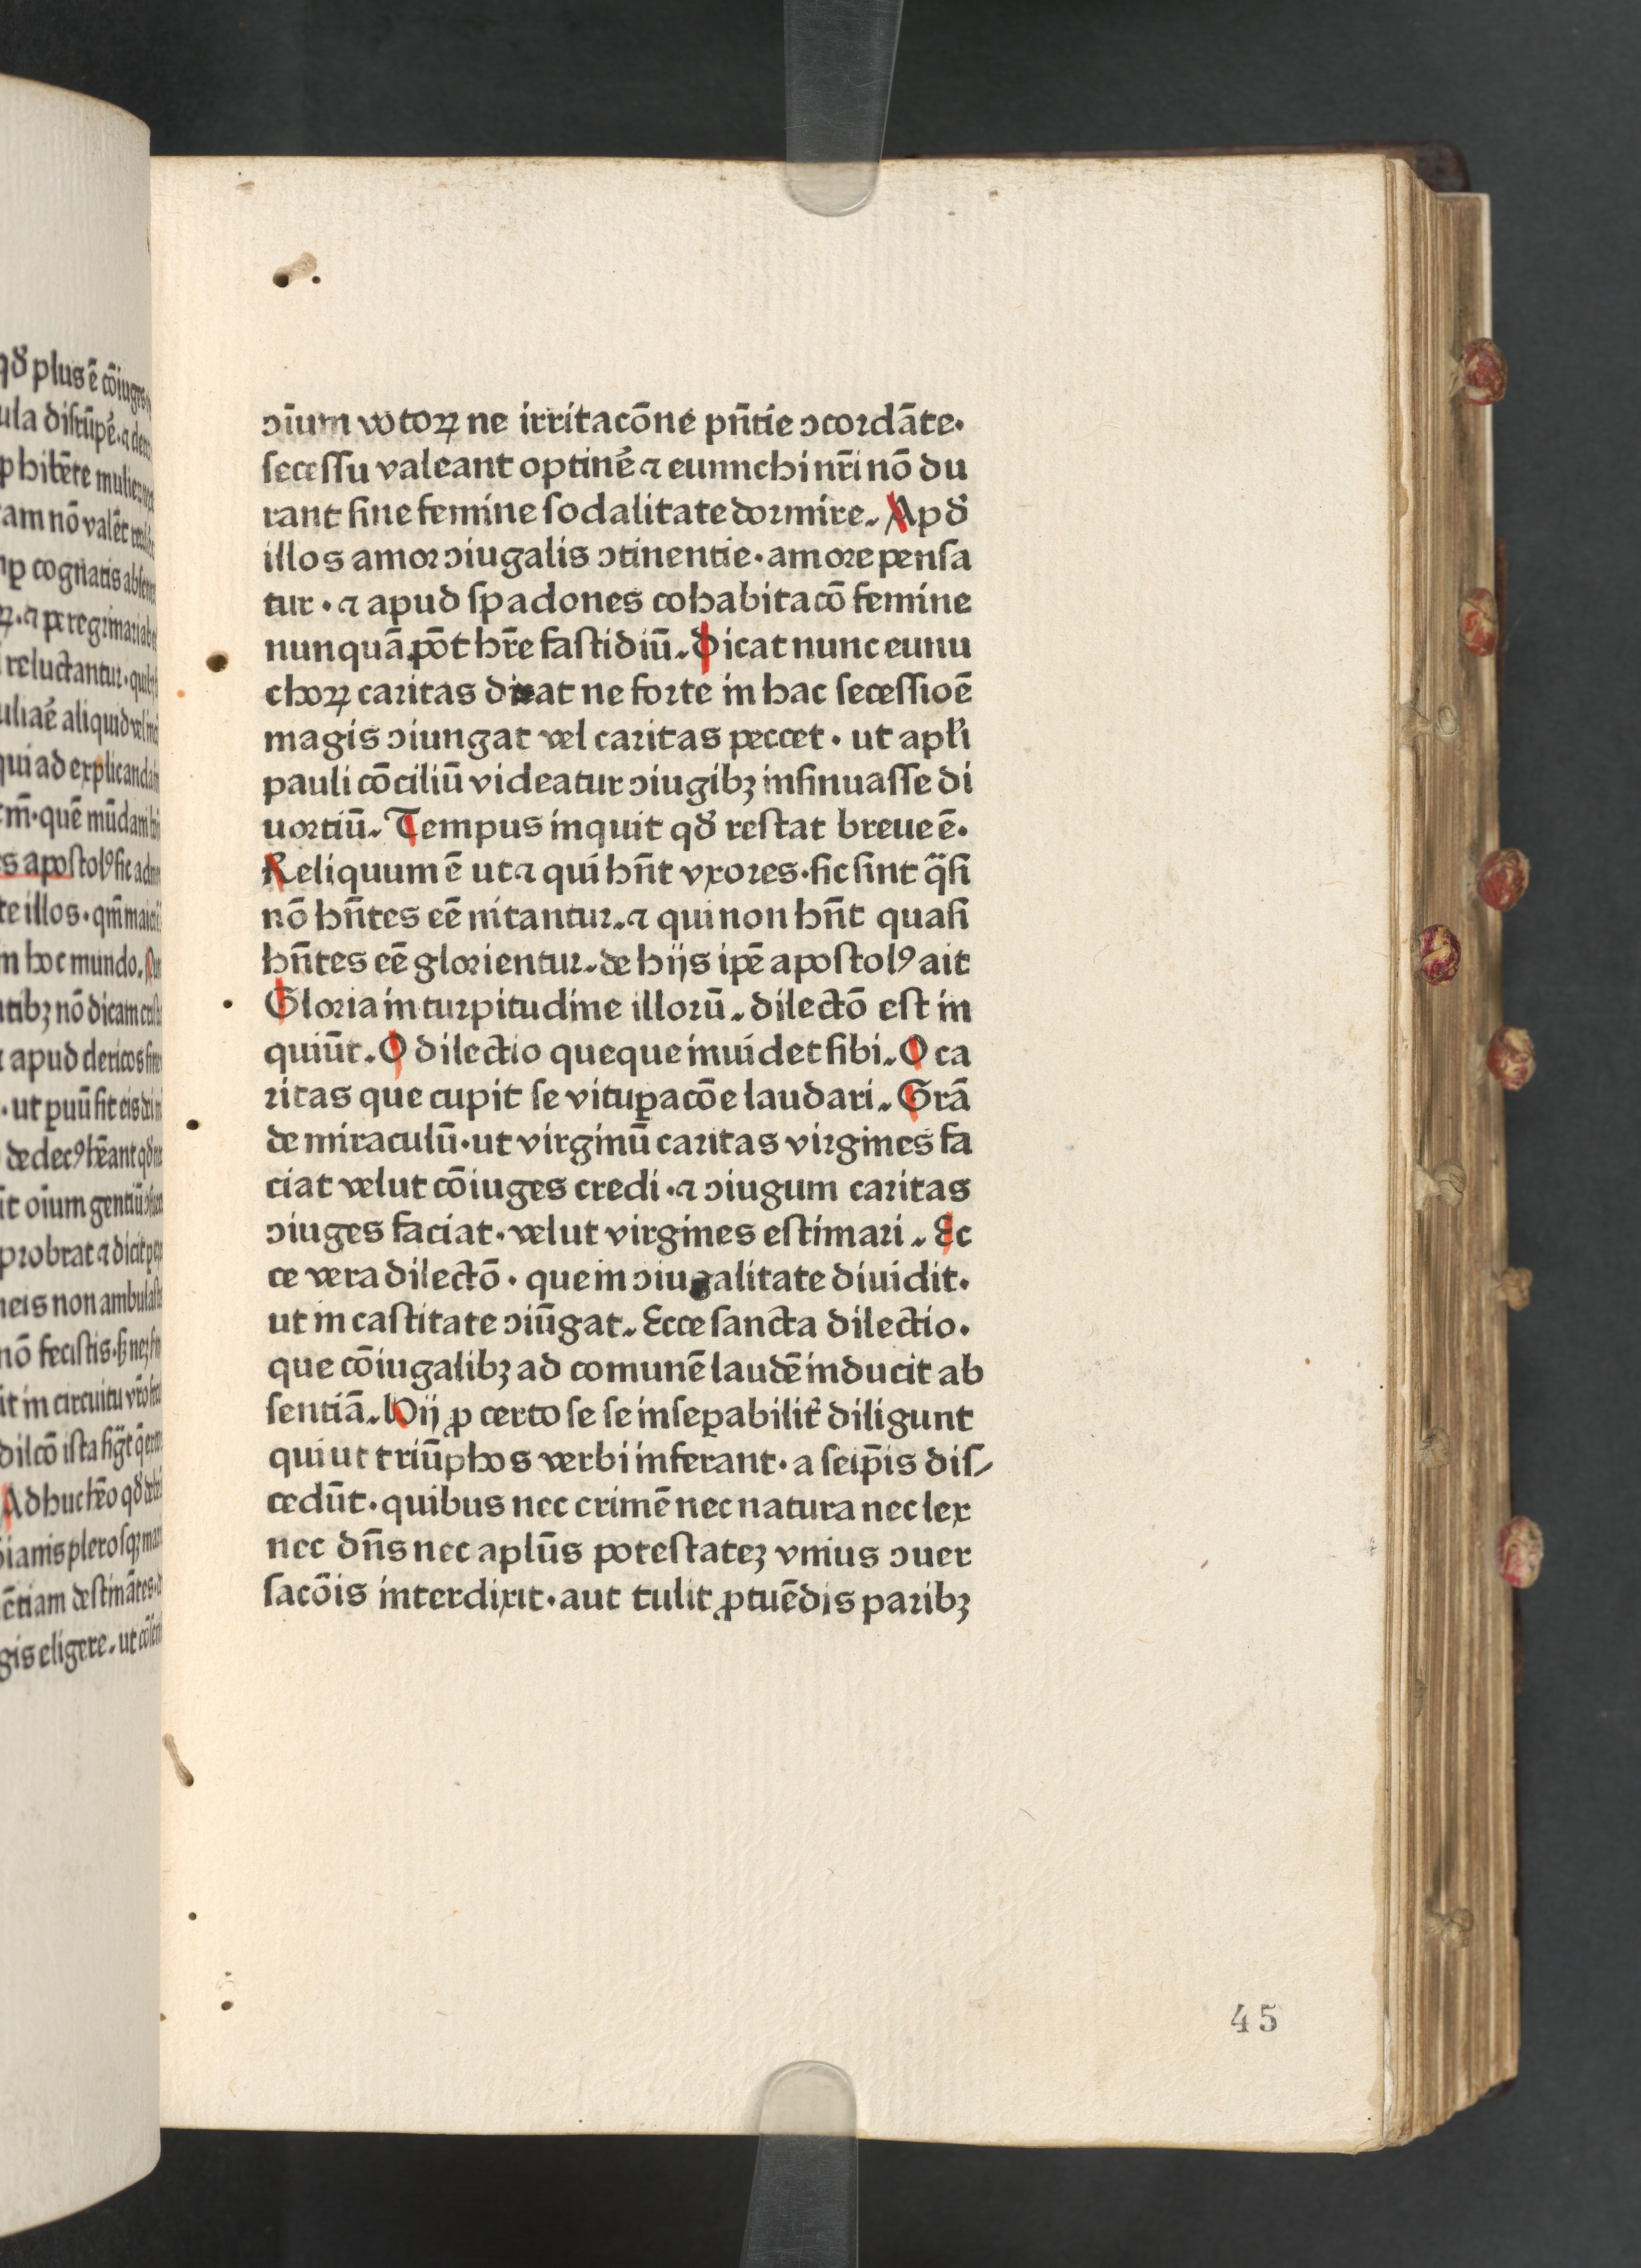 qđ plus ē cōiuges
ula disrūpe᷒.⁊ de
phibēte mulier
am nō valēt
cognatis absen
ꝝ.⁊ peregrinari
reluctantur. qui
aliquid vel
qui ad explicanda
quē mūdani
s apostolꝰ sic ad
te illos. qm̄ mai
n hoc mundo.
tibꝫ nō dicam
apud clericos sine
. ut puū sit eis
de decꝰ hēant qđ
oīum gentiū
probrat ⁊ dicit
neis non ambulast
nō fecistis. sꝫ neꝫ
it in circuitu vr̄o
dilcō ista
Adhuc hēo qđ
ianis plerosqꝫ
ētiam destināte
gis eligere. ut cōsen
ↄīum votoꝝ ne irritacōne pn̄tie ↄcordāte.
secessu valeant optine᷒ ⁊ eunuchi nr̄i nō du
rant sine femine sodalitate dormire. Apđ
illos amor ↄiugalis ↄtinentie. amore pensa
tur. ⁊ apud spadones cohabitacō femine
nunquā pōt hr̄e fastidiū. Dicat nunc eunu
choꝝ caritas dicat ne forte in hac secessioē
magis ↄiungat vel caritas peccet. ut apl̄i
pauli cōciliū videatur ↄiugibꝫ insinuasse di
uortiū. Tempus inquit qđ restat breue ē.
Reliquum ē ut ⁊ qui hn̄t vxores. sic sint q̄si
nō hn̄tes eē nitantur. ⁊ qui non hn̄t quasi
hn̄tes eē glorientur. de hijs ipē apostolꝰ ait
Gloria in turpitudine illorū. dilectō est in
quiūt. O dilectio queque inuidet sibi. O ca
ritas que cupit se vituꝑacōe laudari. Grā
de miraculū. ut virginū caritas virgines fa
ciat velut cōiuges credi. ⁊ ↄiugum caritas
ↄiuges faciat. velut virgines estimari. Ec
ce vera dilectō. que in ↄiugalitate diuidit.
ut in castitate ↄiūgat. Ecce sancta dilectio.
que cōiugalibꝫ ad comunē laudē inducit ab
sentiā. Hij ꝓ certo se se inseꝑabilit᷒ diligunt
qui ut triūphos verbi inferant. a seip̄is dis⸗
cedūt. quibus nec crimē nec natura nec lex
nec dn̄s nec aplūs potestateꝫ vnius ↄuer
sacōis interdixit. aut tulit ꝓtuēdis paribꝫ
45